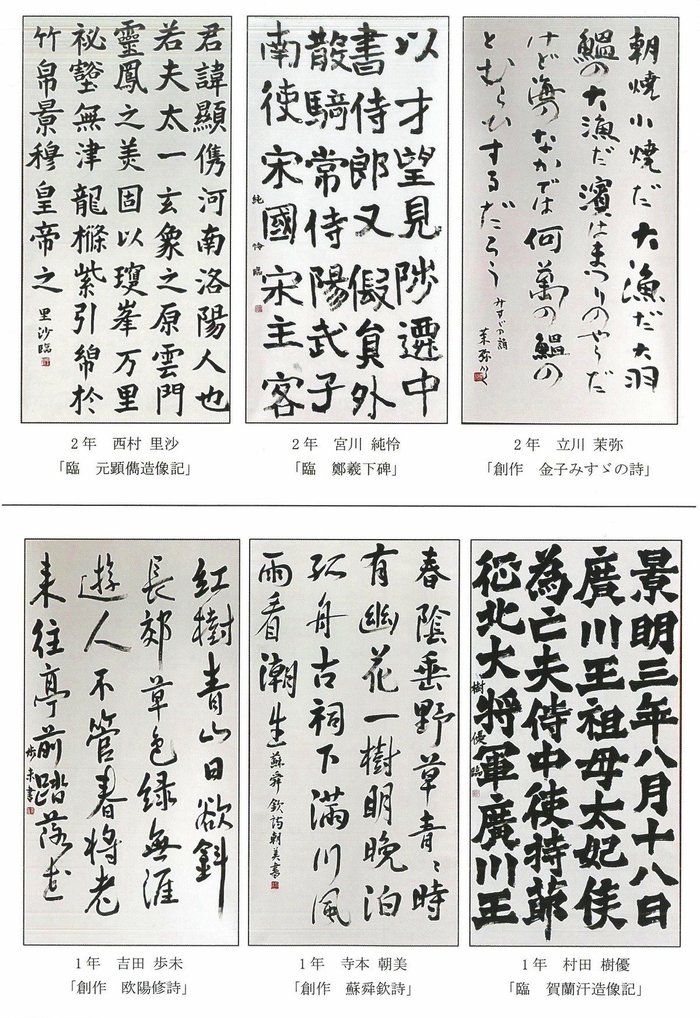 君諱顯儁河南洛陽人也
若夫太一玄象之原雲門
靈鳳之美固以瓊峯万里
祕壑無津龍樤紫引綿於
竹帛景穆皇帝之 里沙臨
2年 西村 里沙
「臨 元顕儁造像記」
以才望見陟遷中
書侍郎又假員外
散騎常侍陽武子
南使宋國宋主客
純怜臨
2年 宮川 純怜
「臨 鄭羲下碑」
朝焼小焼だ大漁だ大羽
鰮の大漁だ濱はまつりのやうだ
けど海のなかでは何萬の鰮の
とむらひするだろう
みすゞの詩 茉弥かく
2年 立川 茉弥
「創作 金子みすゞの詩」
紅樹青山日欲斜
長郊草色緑無涯
遊人不管春将老
来往亭前踏落花
歩未書
1年 吉田 歩未
「創作 欧陽修詩」
春陰垂野草青々時
有幽花一樹明晩泊
孤舟古祠下満川風
雨看潮生 蘇舜欽詩朝美書
1年 寺本 朝美
「創作 蘇舜欽詩」
景明三年八月十八日
廣川王祖母太妃侯
為亡夫侍中使持節
征北大将軍廣川王
樹優臨
1年 村田 樹優
「臨 賀蘭汗造像記」